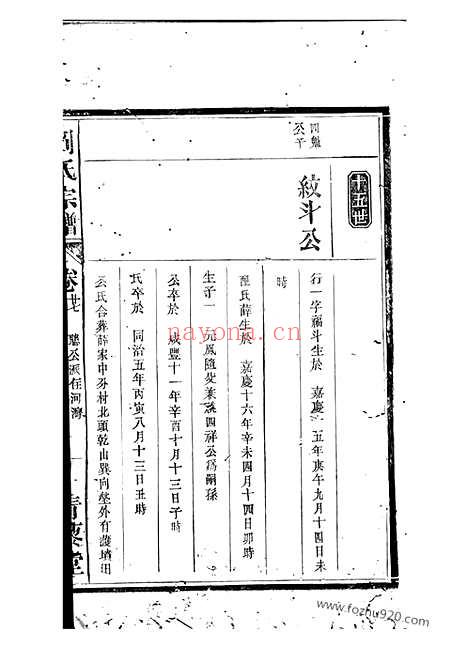 十五世
四
公子
紋斗公
行一字福斗生於 嘉慶十五年庚午九月十四日未
時
配氏薛生於 嘉慶十六年辛未四月十四日卯時
生子一 元鳳隨
四祥公為嗣孫
公卒於 咸豐十一年辛酉十月十三日子時
氏卒於 同治五年丙寅八月十三日丑時
公氏合葬薛家中外村北頭乾山巽向塋外有護墳田
劉氏宗譜
卷廿七
公派任河灣
青藜堂
nayona.cn
www.fozhu920.com